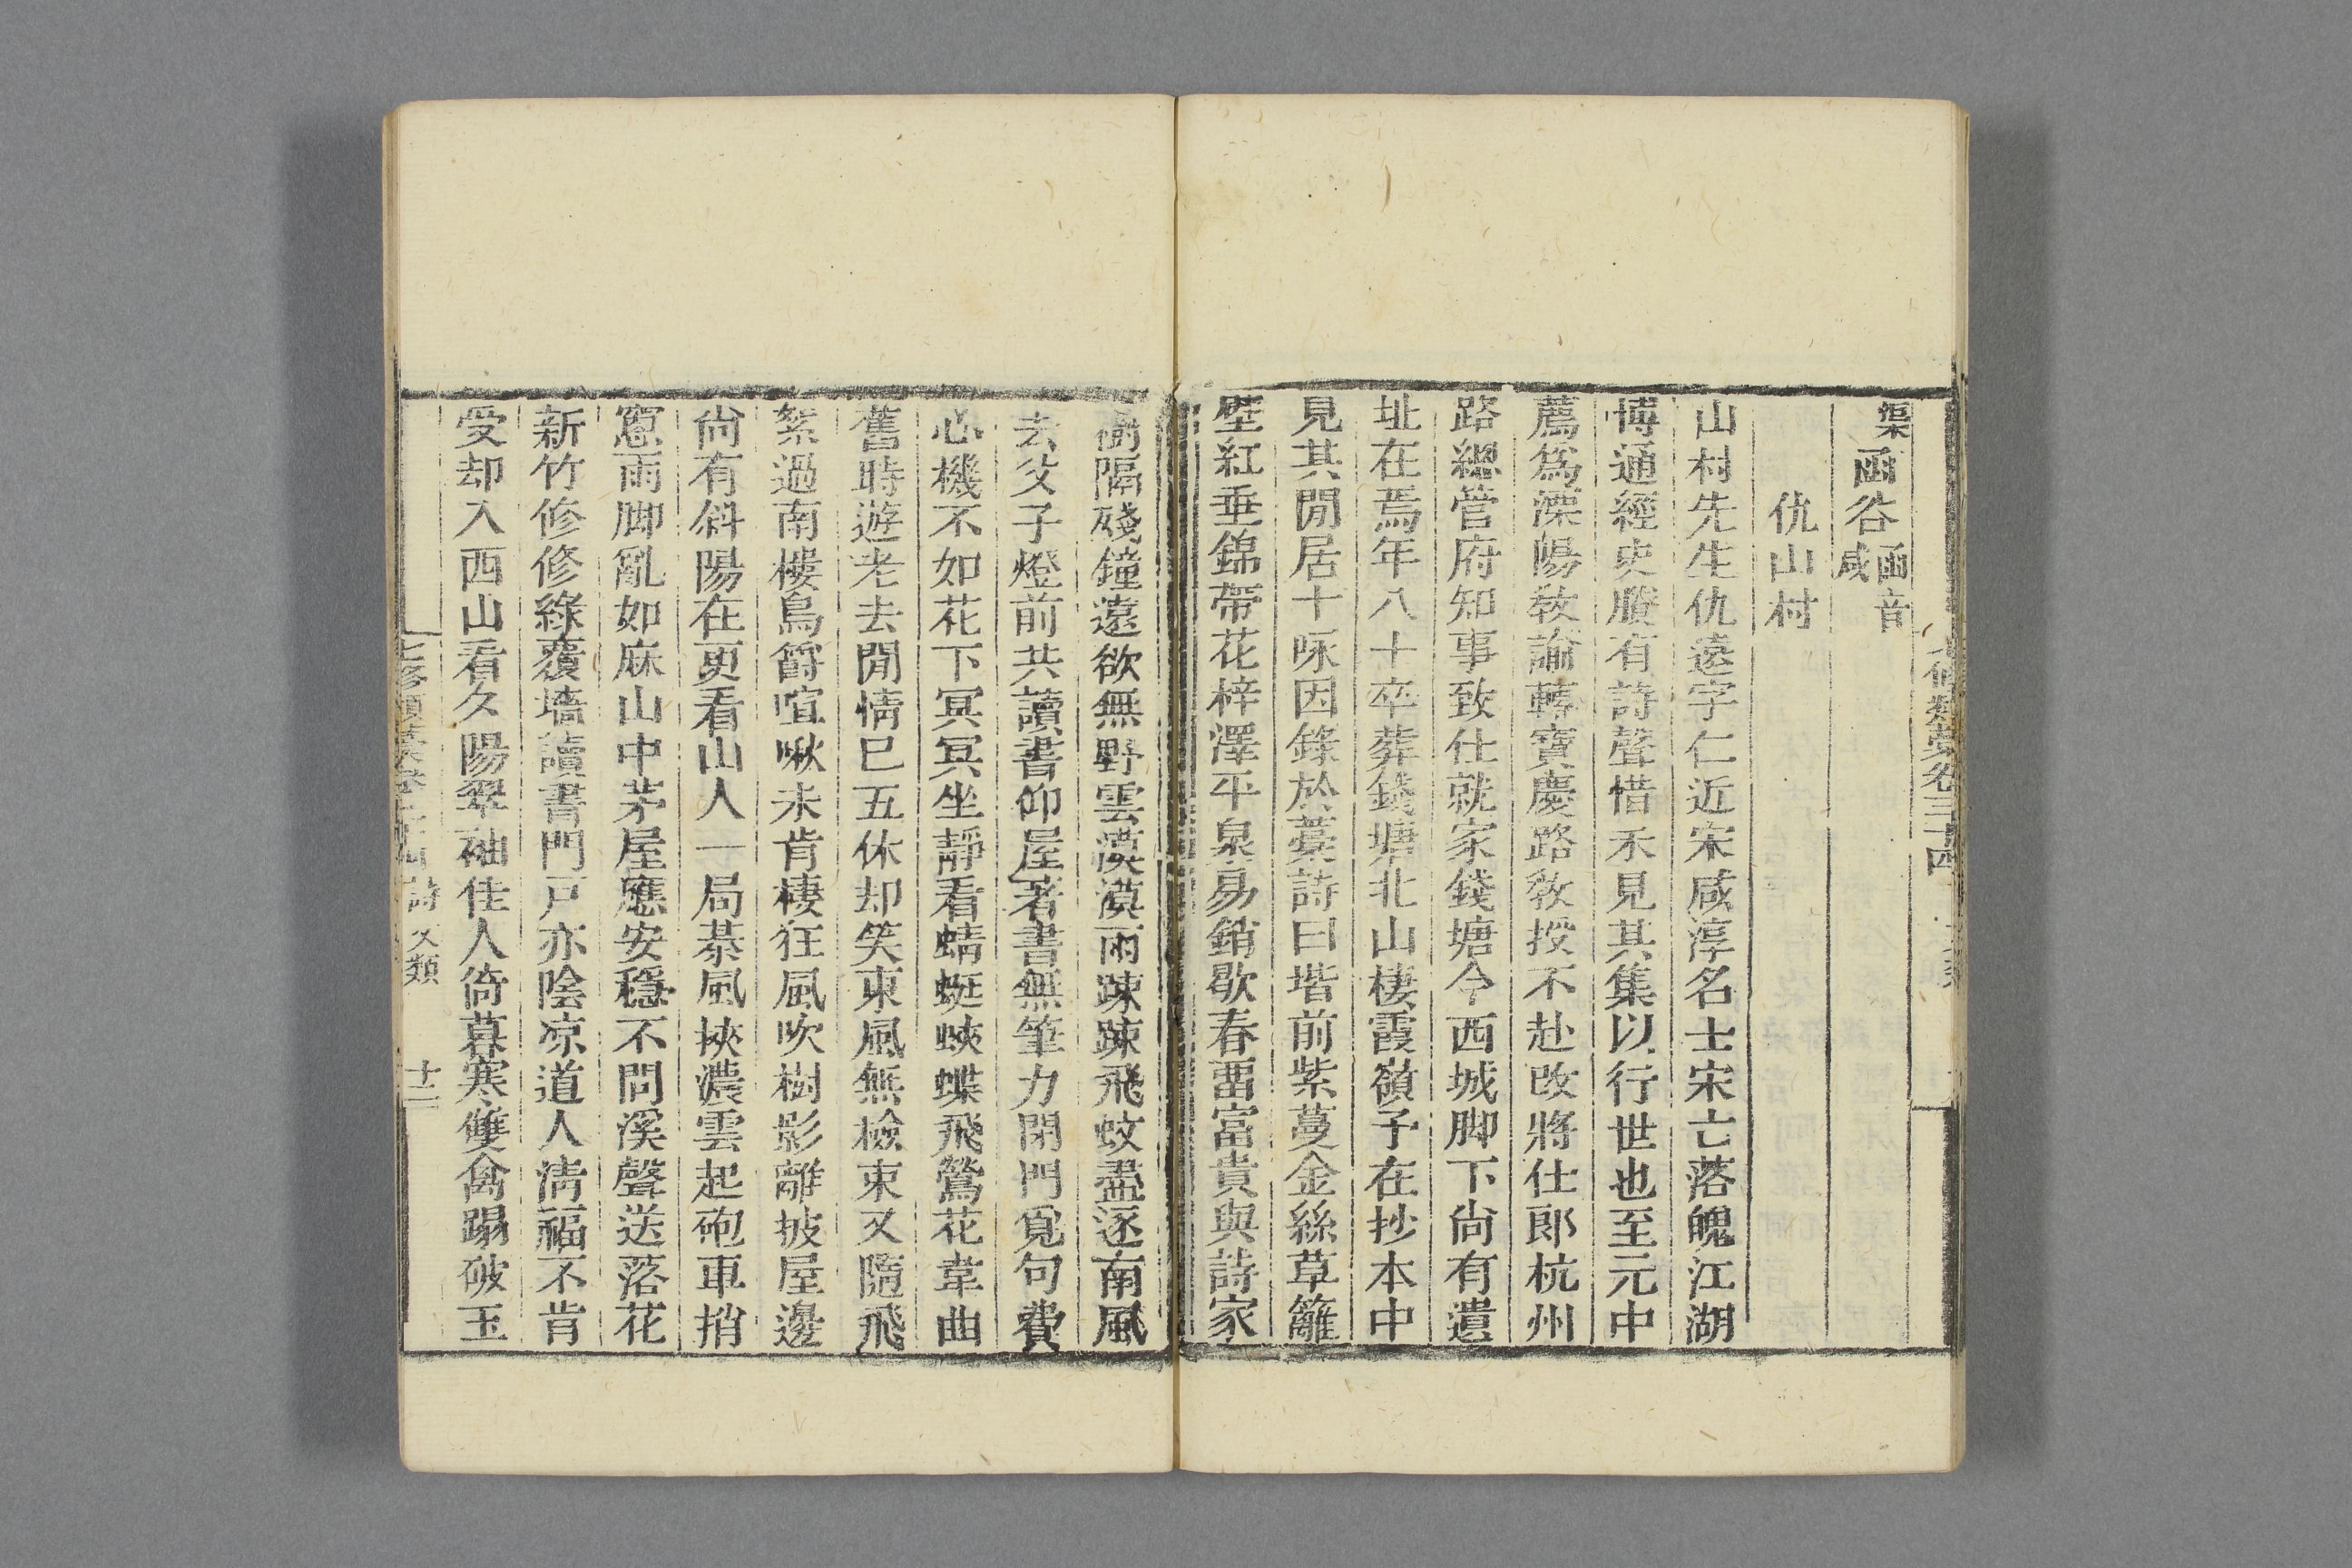 七修類藁卷三十四
渠函谷函音咸
仇山村
山村先生仇遠字仁近宋咸淳名士宋亡落魄江湖
博通經史賸有詩聲惜不見其集以行世也至元中
薦爲溧陽敎諭轉寶慶路敎授不赴改將仕郎杭州
路總管府知事致仕就家錢塘今西城脚下尚有遺
址在焉年八十卒葬錢塘北山棲霞嶺予在抄本中
見其閒居十咏因錄於藁詩曰堦前紫蔓金絲草籬
壁紅垂錦帶花梓澤平泉易銷歇春畱富貴與詩家
樹隔殘鐘遠欲無野雲漠漠雨踈踈飛蚊盡逐南風
去父子燈前共讀書仰屋著書無筆力閉門覓句費
心機不如花下冥冥坐靜看蜻蜓蛺蝶飛鶯花韋曲
舊時遊老去閒情已五休却笑東風無檢束又隨飛
絮過南樓鳥爵喧啾未肯棲狂風吹樹影離披屋邊
尚有斜陽在更看山人一局棊風挾濃雲起砲車捎
窻雨脚亂如麻山中茅屋應安穩不問溪聲送落花
新竹修修綠覆墻讀書門戸亦陰凉道人淸福不肯
受却入西山看久陽翠袖佳人倚暮寒雙禽踢破玉
七修類藁卷三十四 詩文類 十二